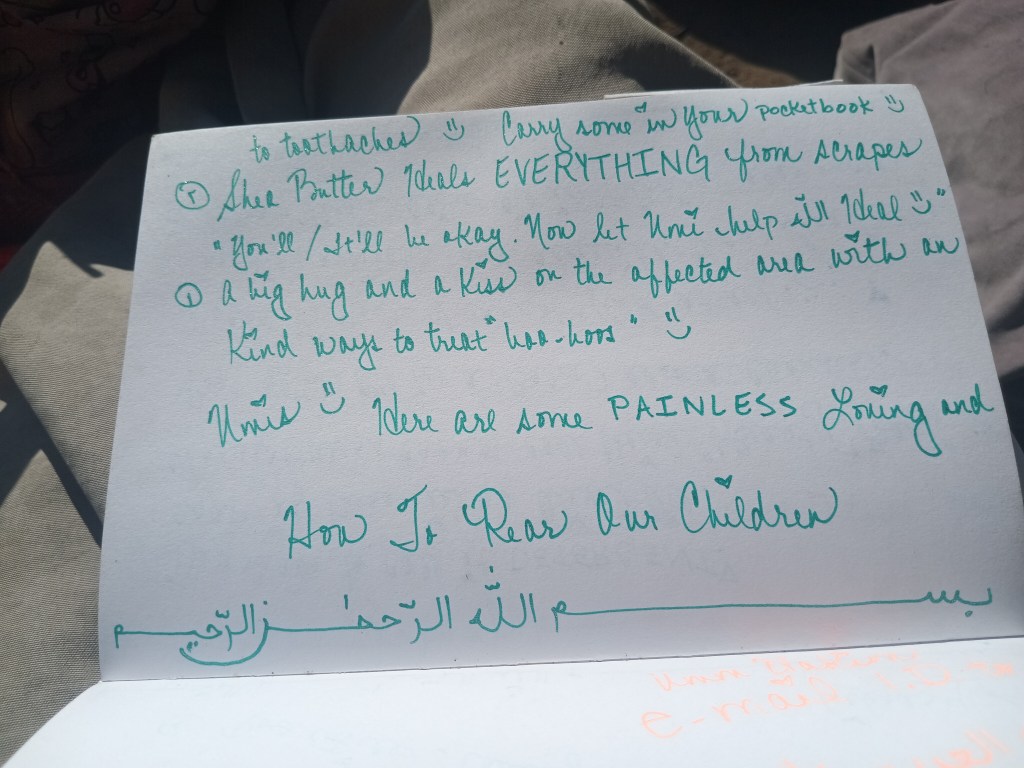 بسم الله الرّحمٰن الرّحيم
How To Rear Our Children
Umis Here are some PAINLESS Loving and
Kind ways to treat "boo-boos"
١ A big hug and a Kiss on the affected area with an
"You'll/It'll be okay. Now let Umi help الله Heal"
٢ Shea Butter Heals EVERYTHING from scrapes
to toothaches Carry some in your pocketbook